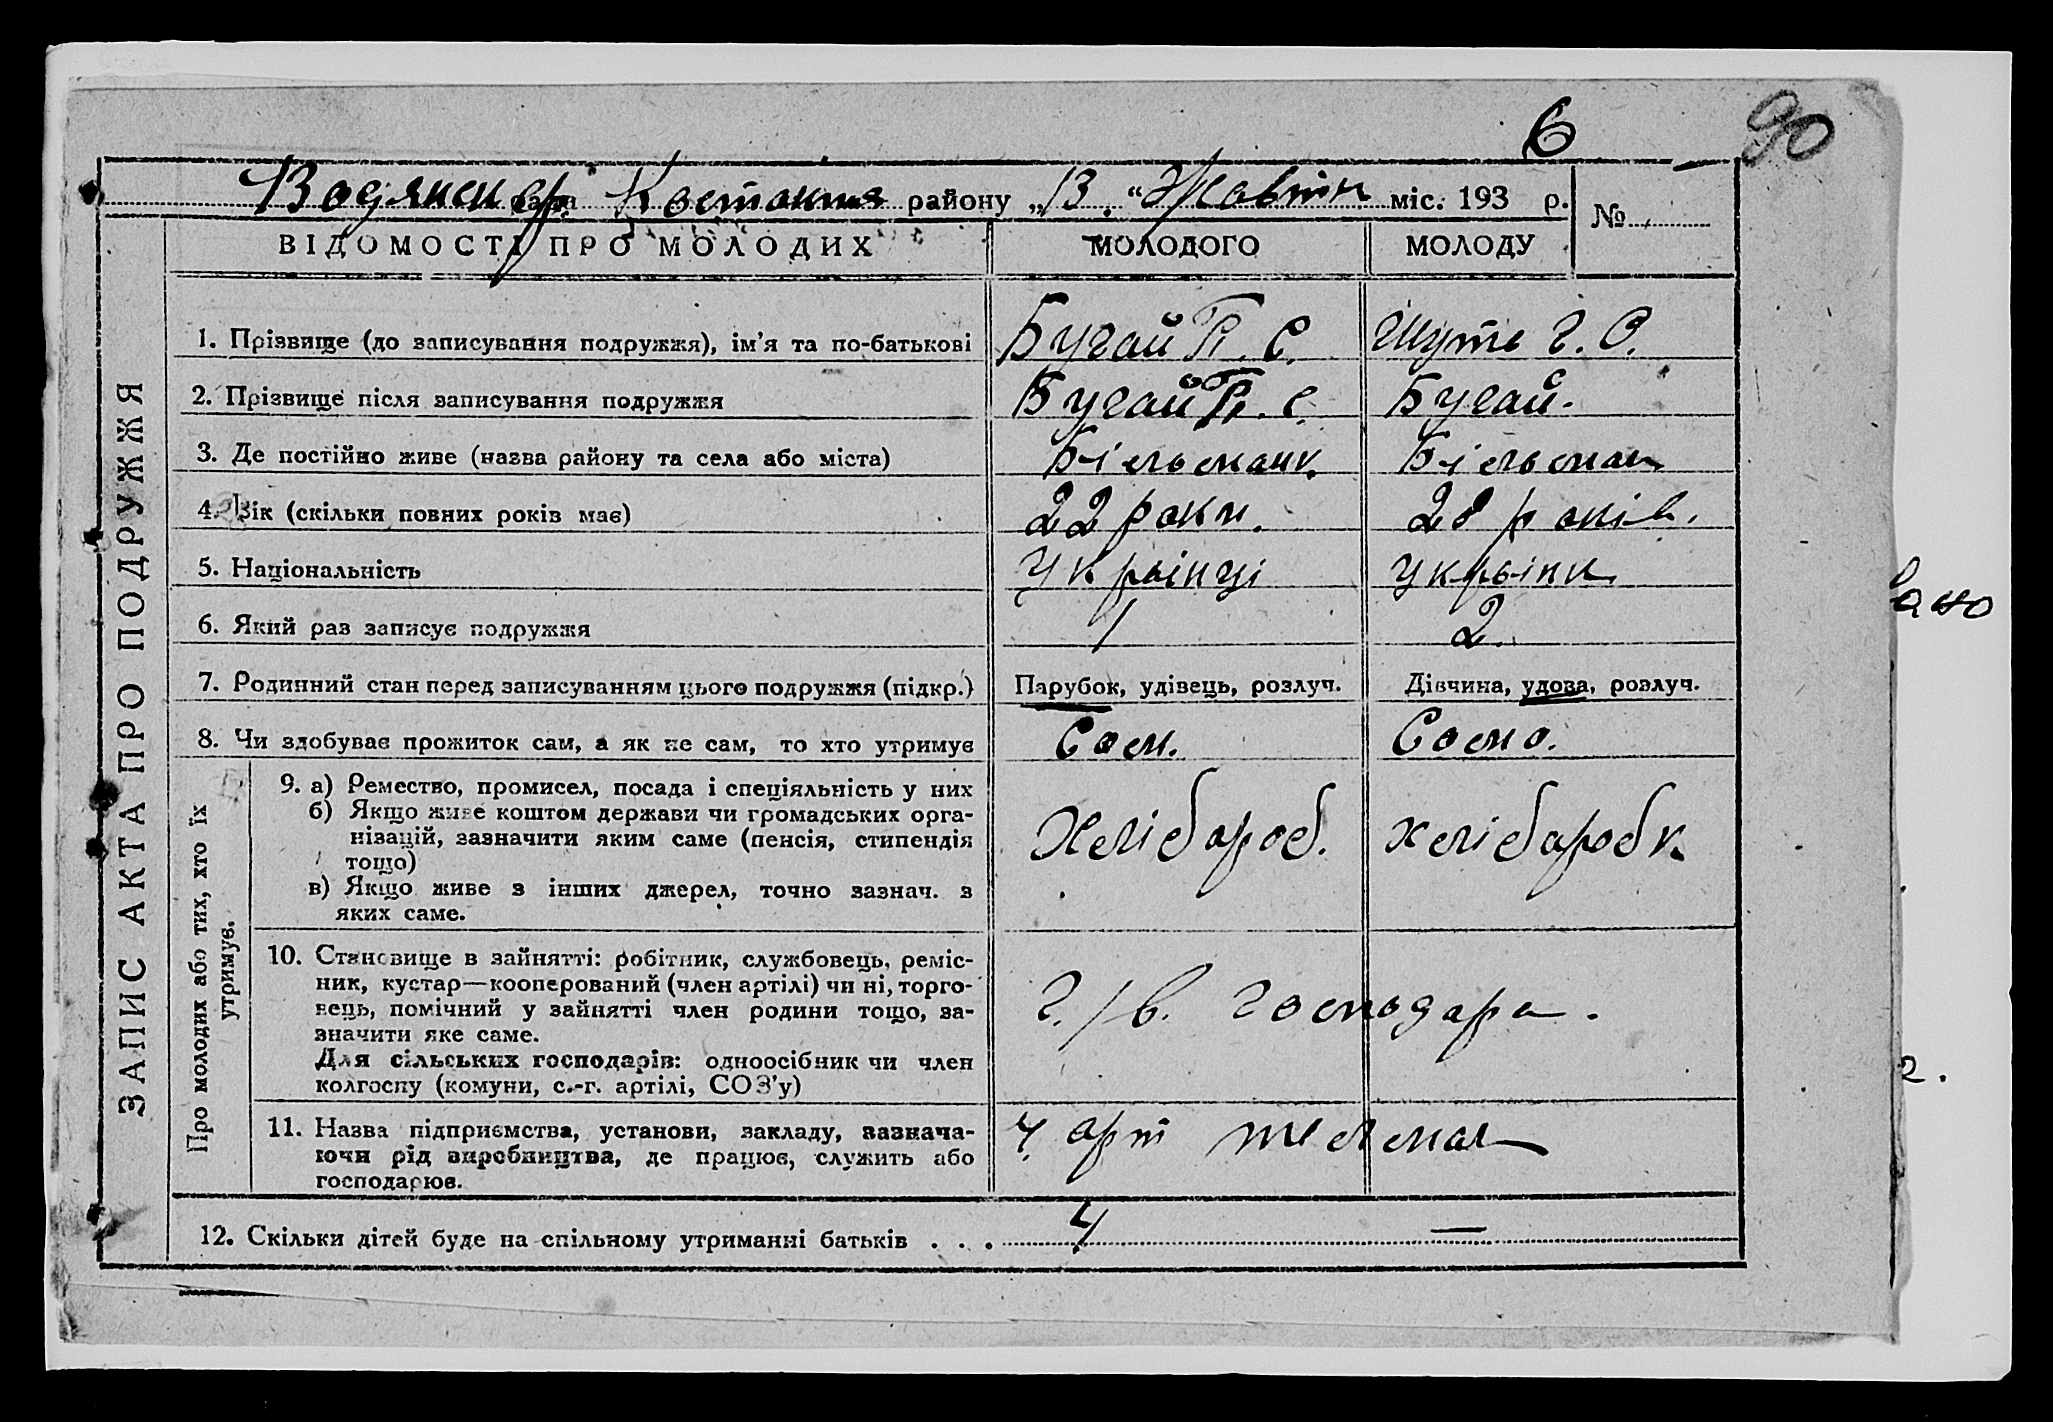 6
90
Водянськ с/р. Костянт району „13.“ Жовтн міс. 193 р. №
ВІДОМОСТІ ПРО МОЛОДИХ МОЛОДОГО МОЛОДУ
ЗАПИС АКТА ПРО ПОДРУЖЖЯ
1. Прізвище (до записування подружжя), ім’я та по-батькові Бугай П. С. Шуть Г. С.
2. Прізвище після записування подружжя Бугай П. С. Бугай.
3. Де постійно живе (назва району та села або міста) Більманк Більман
4. Вік (скільки повних років має) 22 роки. 28 років.
5. Національність Українці Українк
6. Який раз записує подружжя 1 2.
7. Родинний стан перед записуванням цього подружжя (підкр.) Парубок, удівець, розлуч. Дівчина, удова, розлуч.
8. Чи здобуває прожиток сам, а як не сам, то хто утримує Сам. Само.
Про молодих або тих, хто їх утримує.
9. а) Ремество, промисел, посада і спеціяльність у них
б) Якщо живе коштом держави чи громадських орга-
нізацій, зазначити яким саме (пенсія, стипендія
тощо)
в) Якщо живе з інших джерел, точно зазнач. з
яких саме.
Хлібороб. хліборобк
10. Становище в зайнятті: робітник, службовець, реміс-
ник, кустар—кооперований (член артілі) чи ні, торго-
вець, помічний у зайнятті член родини тощо, за-
значити яке саме.
Для сільських господарів: одноосібник чи член
колгоспу (комуни, с.-г. артілі, СОЗ’у)
г./в. господара.
11. Назва підприємства, установи, закладу, зазнача-
ючи рід виробництва, де працює, служить або
господарює.
Ч. арт тельман
12. Скільки дітей буде на спільному утриманні батьків . . . —
вано
2.